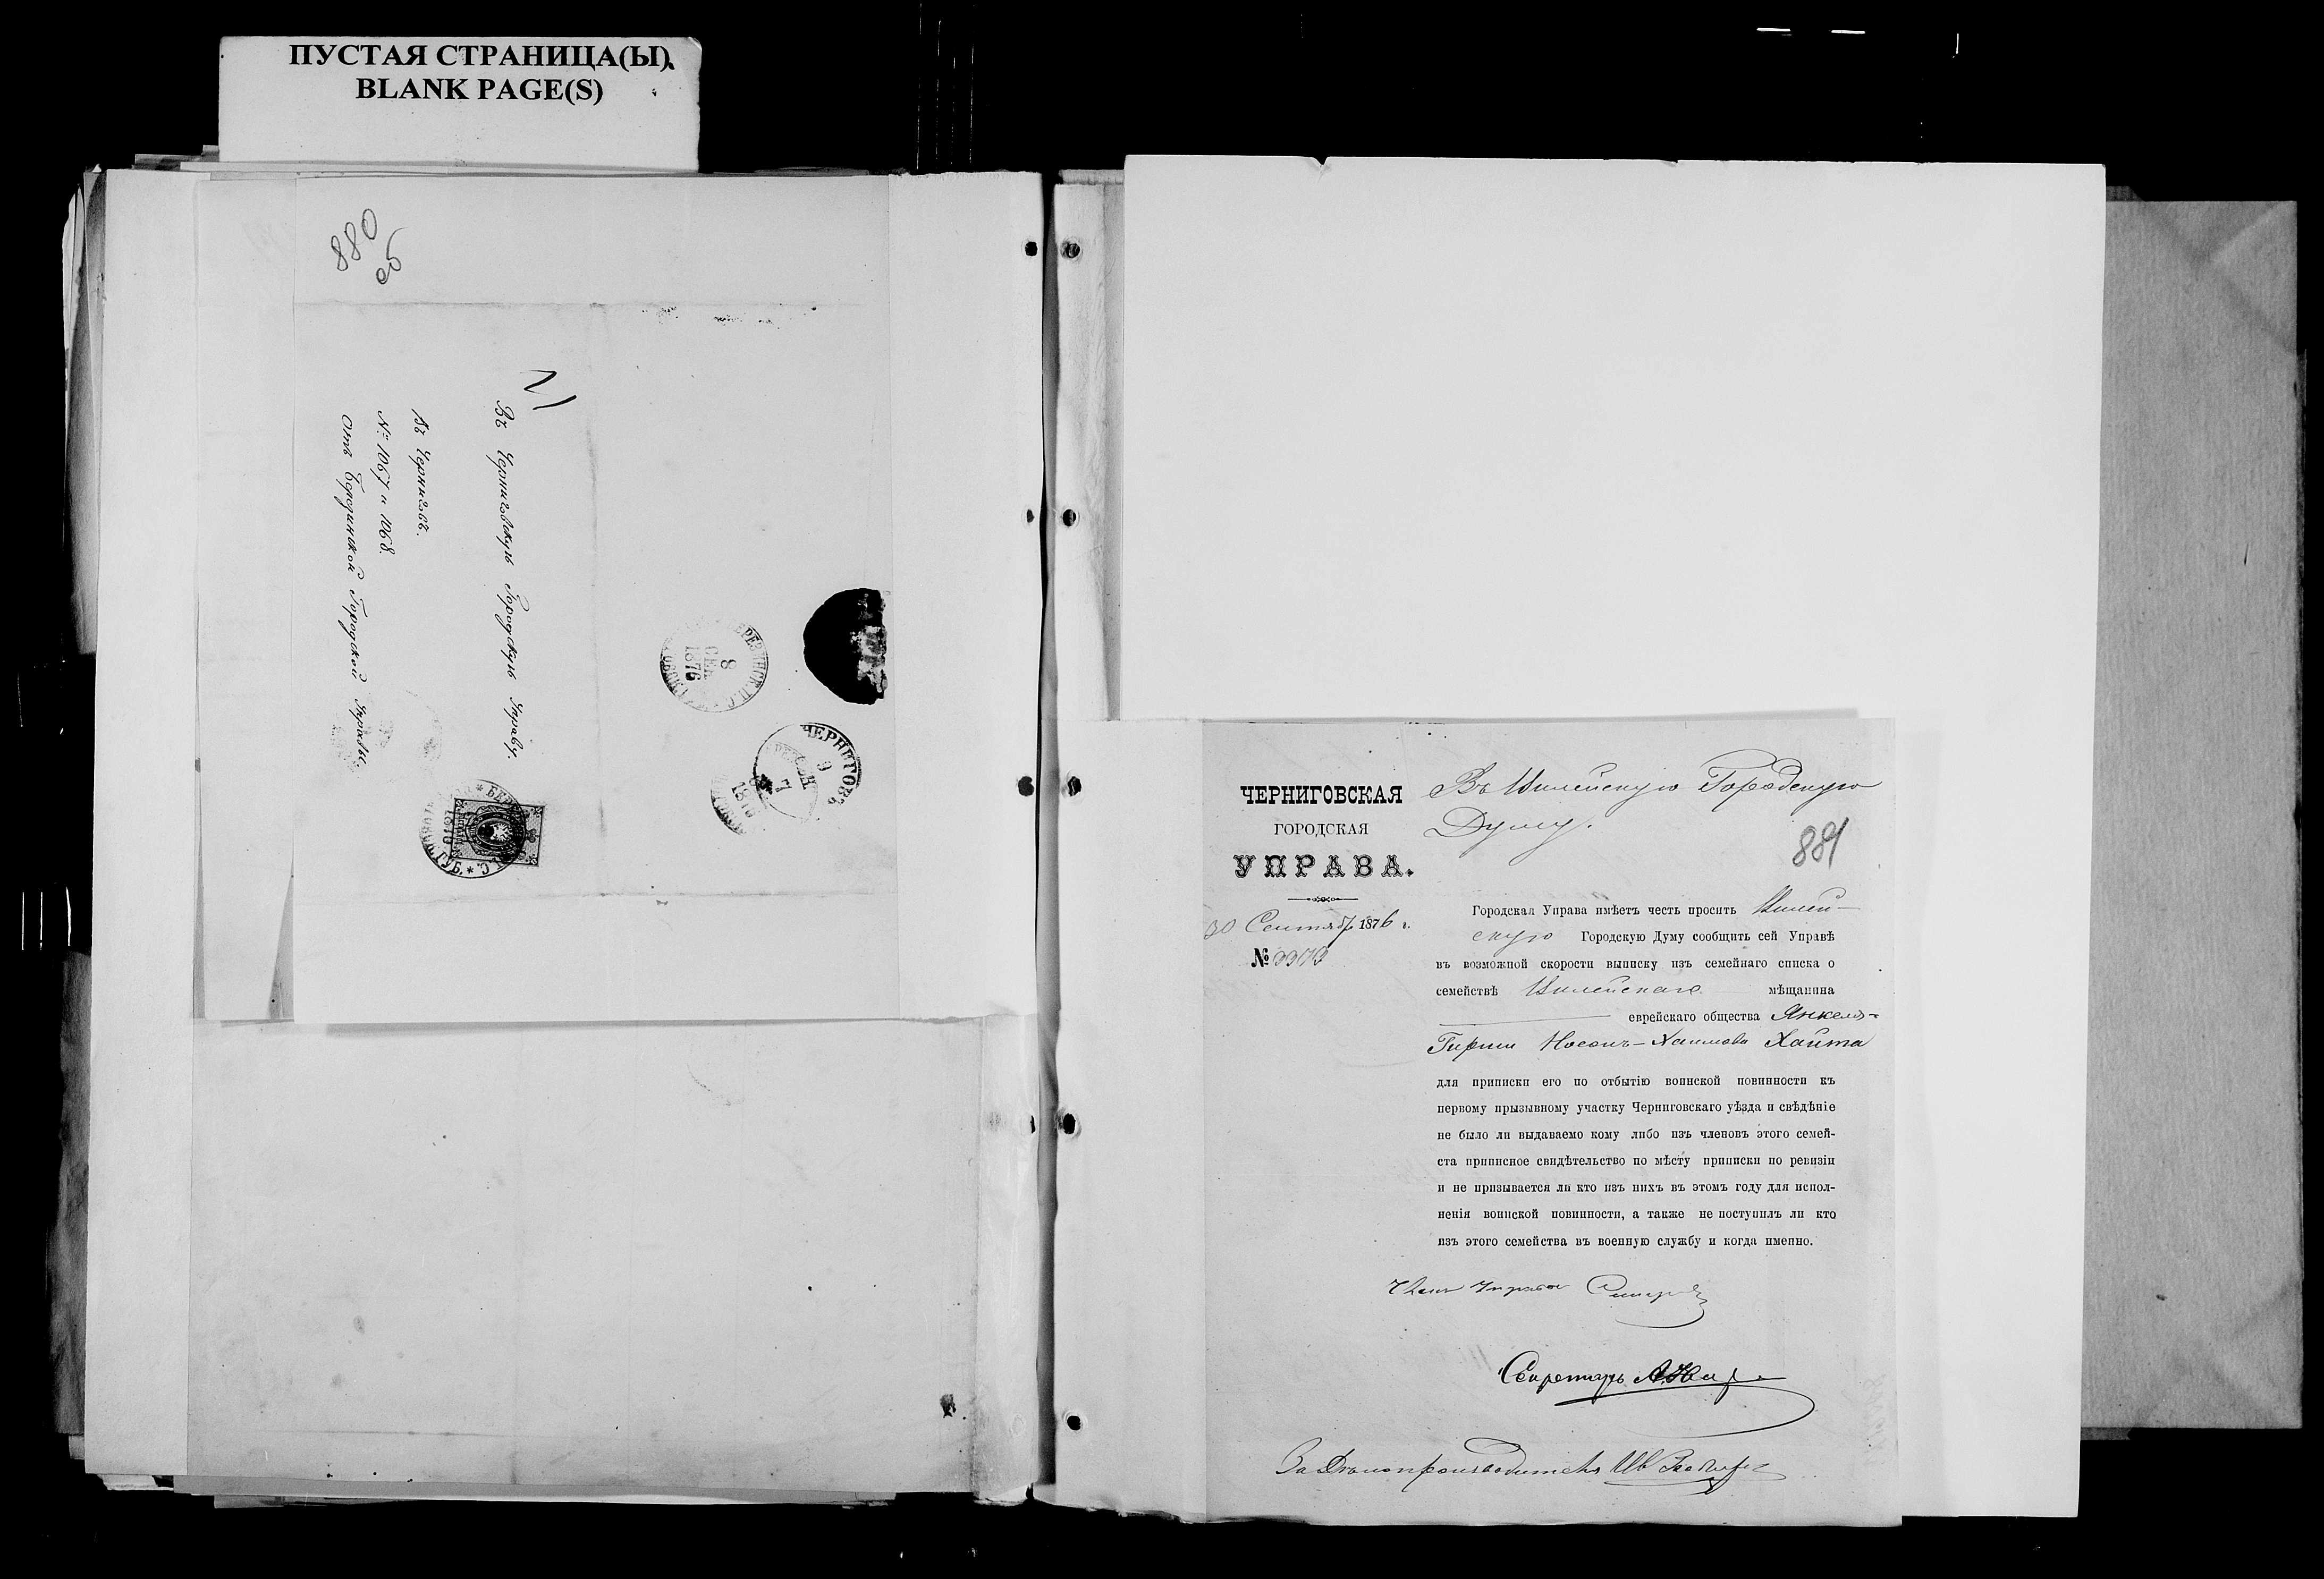 ПУСТАЯ СТРАНИЦА(Ы)
BLANK PAGE(S)
880
Въ Черниговскую Городскую Управу.
Въ Черниговъ.
№ 1067 и 1068.
Отъ Городской Управы.
8
СЕН
1876
ЧЕРНИГОВЪ
9
ЧЕРНИГОВСКАЯ
ГОРОДСКАЯ
УПРАВА.
30 Сентяб 1876 г.
№
Въ Вилейскую Городскую
Думу.
881
Городская Управа имѣетъ честь просить Вилей-
скую Городскую Думу сообщить сей Управѣ
въ возможной скорости выписку изъ семейнаго списка о
семействѣ Вилейскаго мѣщанина
еврейскаго общества Янкеля-
Гирши Носонъ-Хаимова Хаита
для приписки его по отбытію воинской повинности къ
первому призывному участку Черниговскаго уѣзда и свѣдѣніе
не было ли выдаваемо кому либо изъ членовъ этого семей-
ста приписное свидѣтельство по мѣсту приписки по ревизіи
и не призывается ли кто изъ нихъ въ этомъ году для испол-
ненія воинской повинности, а также не поступилъ ли кто
изъ этого семейства въ военную службу и когда именно.
Членъ Управы
Секретарь
За Дѣлопроизводителя